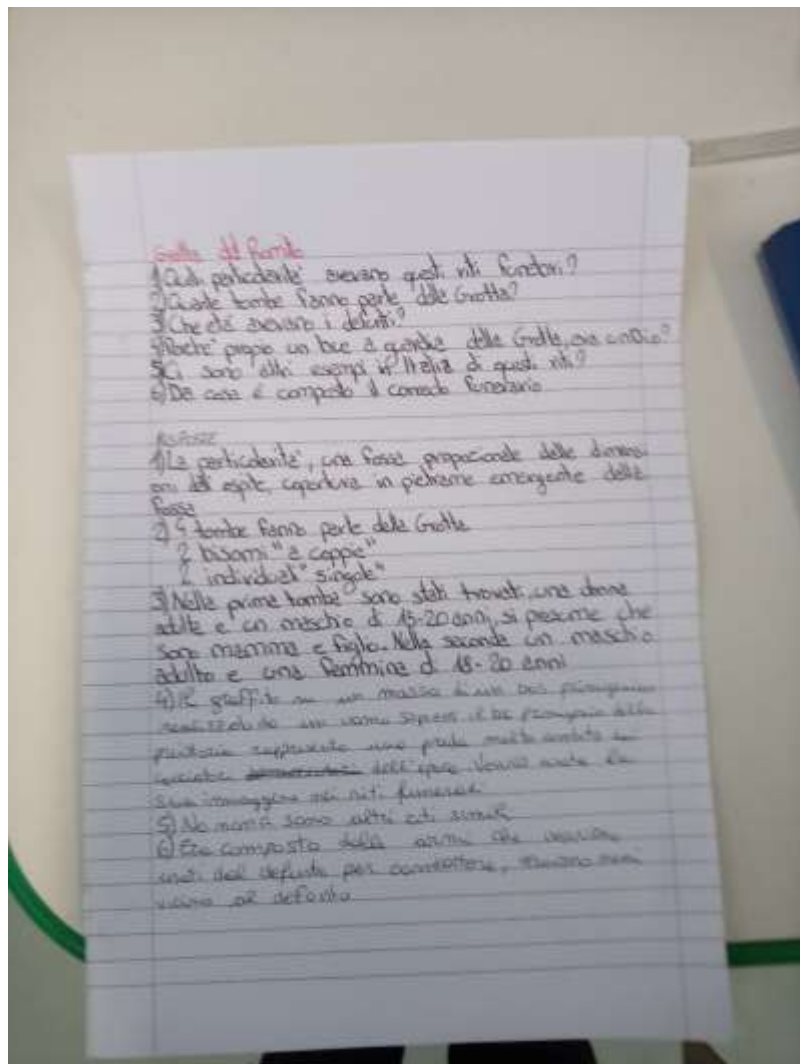 Grotta del Romito
1) Quali particolarità avevano questi riti funerari?
2) Quante tombe fanno parte della Grotta?
3) Che età avevano i defunti?
4) Perché proprio un bue a guardia della Grotta, era un Dio?
5) Ci sono altri esempi in Italia di questi riti?
6) Da cosa è composto il corredo funerario
RISPOSTE
1) La particolarità, una fossa proporzionale delle dimensi
oni ospite, copertura in pietrame emergente della
fossa
2) 4 tombe fanno parte della Grotta
2 bisomi "a coppie"
2 individuali "singole"
3) Nella prima tomba sono stati trovati una donna
adulta e un maschio di 15-20 anni, si presume che
sono mamma e figlio. Nella seconda un maschio
adulto e una femmina di 18-20 anni
4) Il graffito su un masso è un bos primigenius
realizzato da un uomo sapiens il bos primigenius della
preistoria rappresenta una preda molto ambita
dell'epoca. anche la
sua immagine nei riti funerari
5) No non ci sono altri riti simili
6) Era composto dalle armi che venivano
usati dal defunto per combattere, messi
vicino al defunto